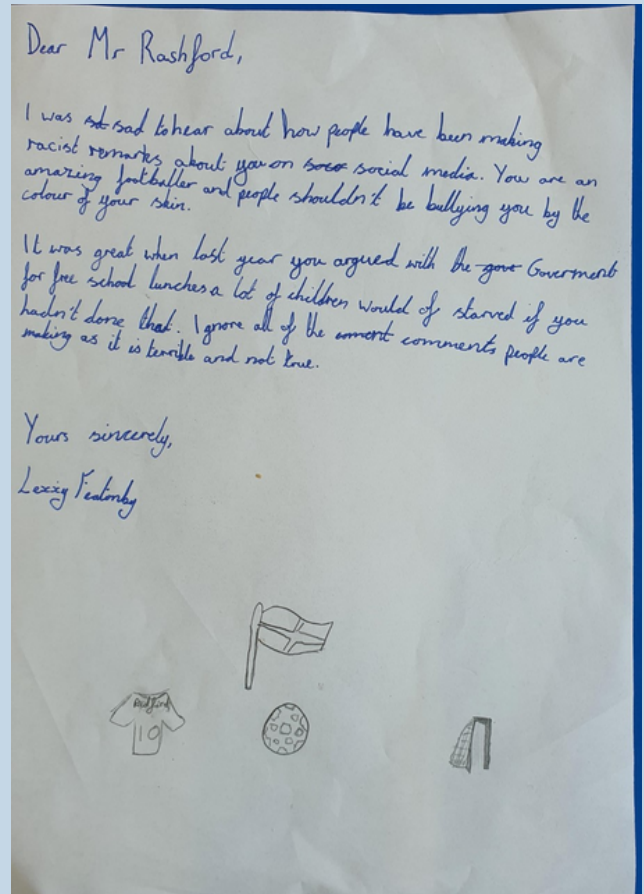 Dear Mr Rashford,
I was sad to hear about how people have been making
racist remarks about you on social media. You are an
amazing footballer and people shouldn't be bullying you by the
colour of your skin.
It was great when last year you argued with the Goverment
for free school lunches a lot of children would of starved if you
hadn't done that. I ignore all of the comments people are
making as it is terrible and not true.
Yours sincerely,
Lexxy Featonby
Rashford
10